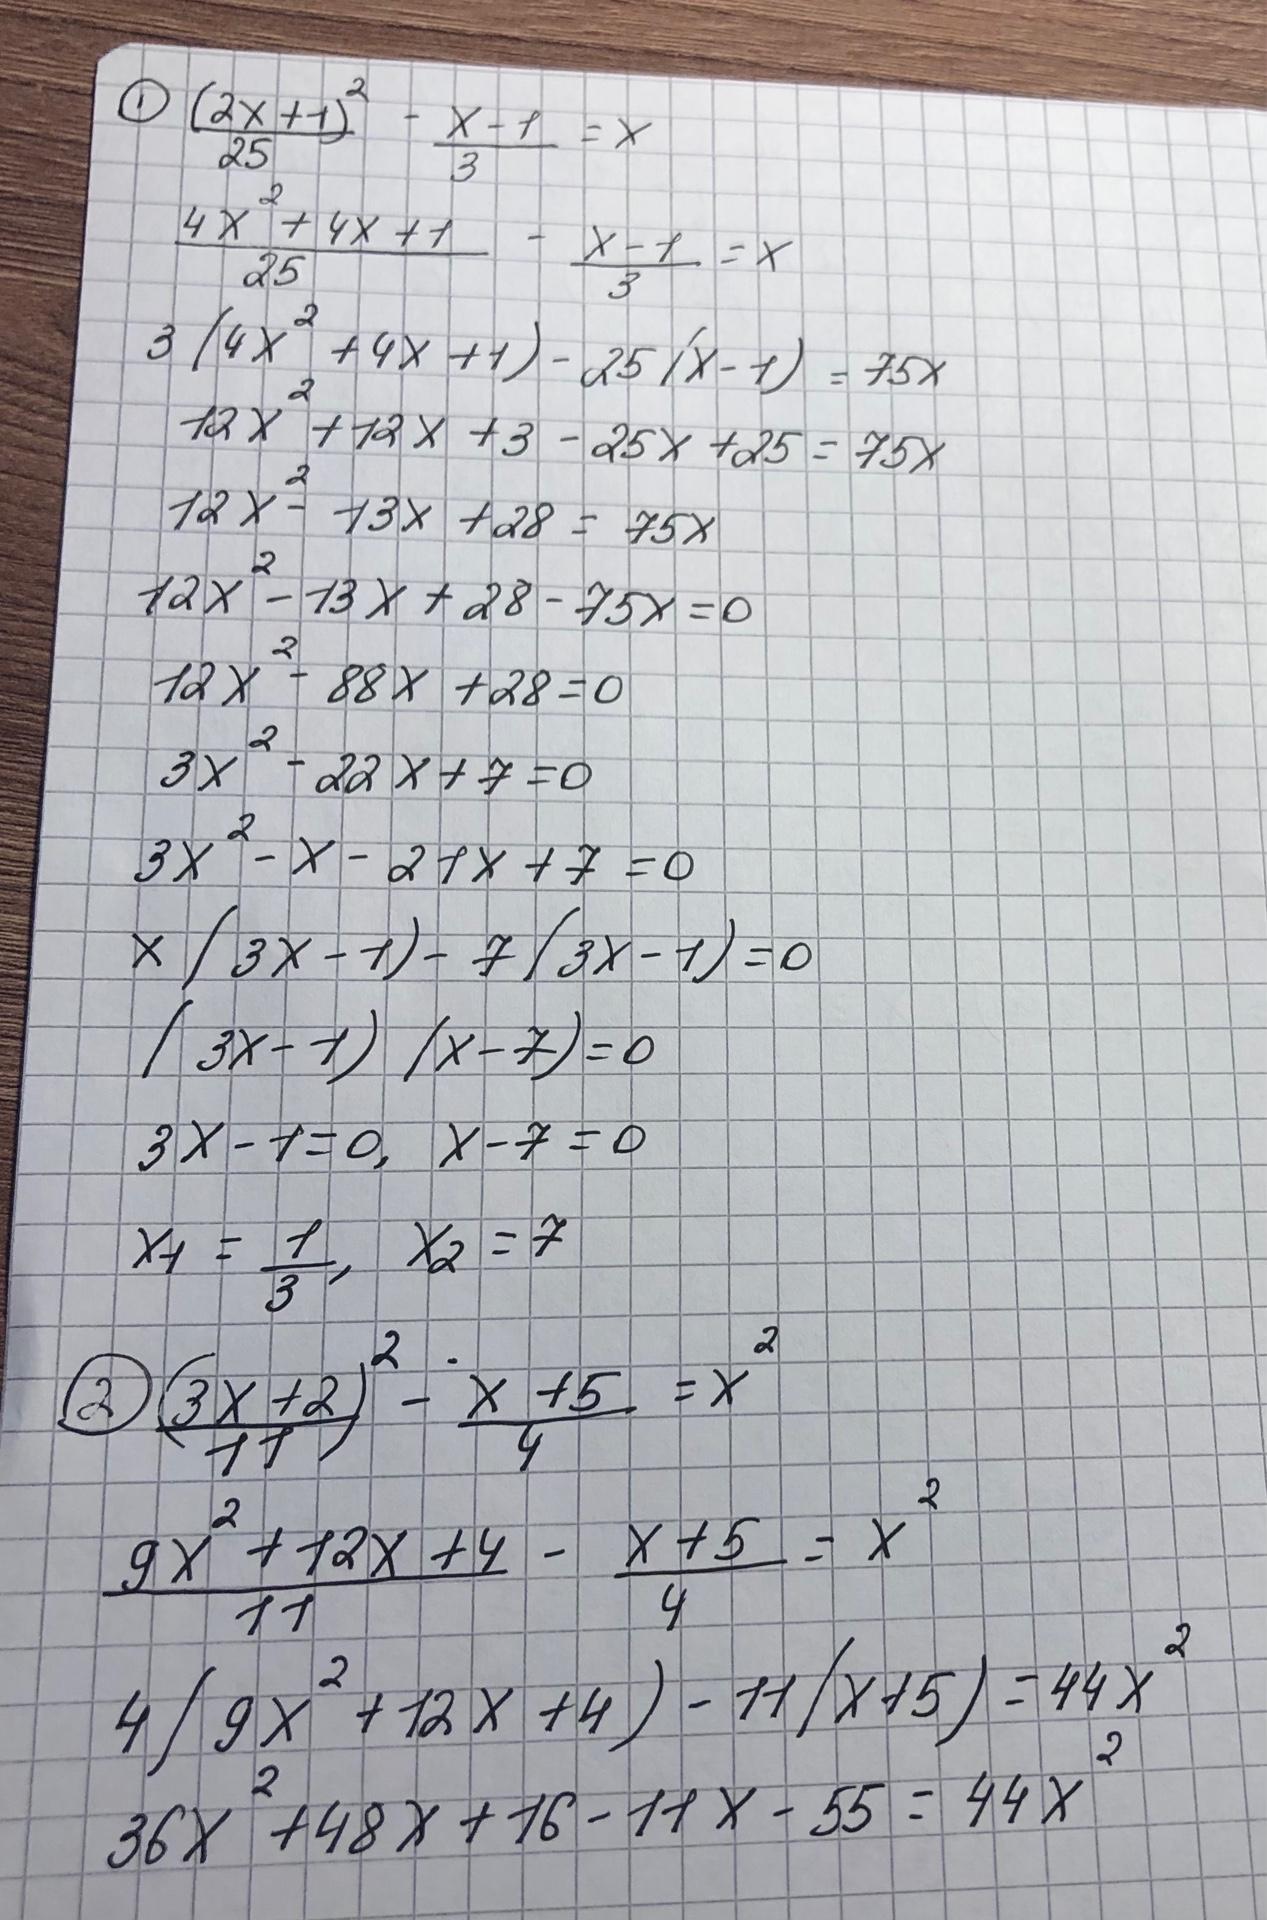 ① (2x+1)²/25 - x-1/3 = x
4x²+4x+1/25 - x-1/3 = x
3(4x²+4x+1)-25(x-1)=75x
12x²+12x+3-25x+25=75x
12x²-13x+28=75x
12x²-13x+28-75x=0
12x²-88x+28=0
3x²-22x+7=0
3x²-x-21x+7=0
x(3x-1)-7(3x-1)=0
(3x-1)(x-7)=0
3x-1=0, x-7=0
x1 = 1/3, x2 = 7
② (3x+2/11)² - x+5/4 = x²
9x²+12x+4/11 - x+5/4 = x²
4(9x²+12x+4)-11(x+5)=44x²
36x²+48x+16-11x-55=44x²